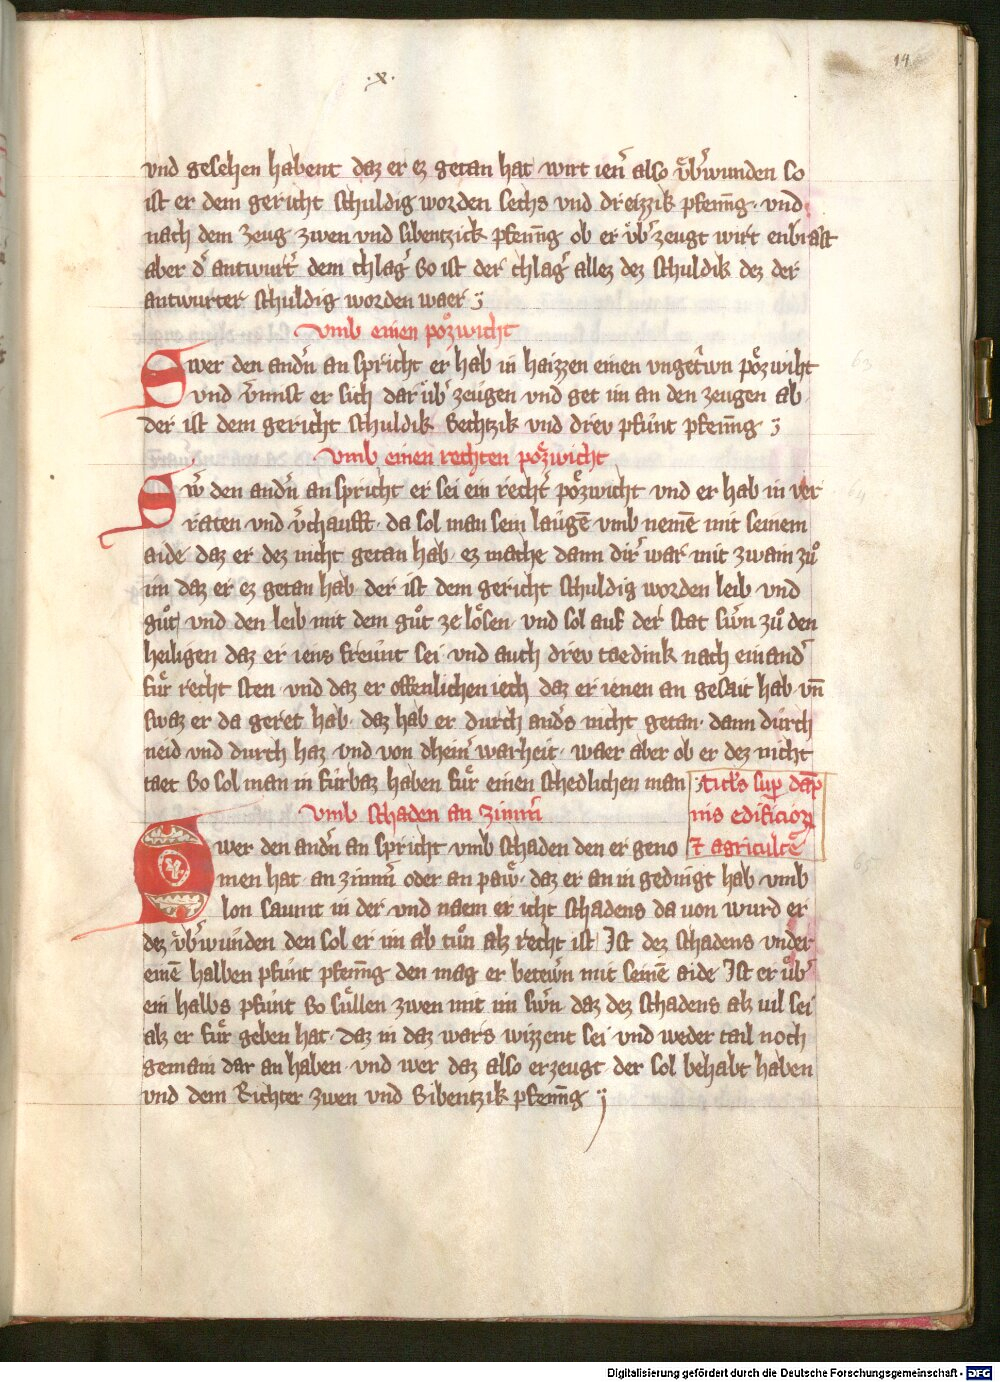 ·x·
14
vnd gesehen habent daz er ez getan hat wirt ienˀ also vͤbˀwunden so
ist er dem gericht schuldig worden sechs vnd dreizzik pfenn̄g · vnd
nach dem zeug zwen vnd sibentzick pfenn̄g ob er vͤbˀzeugt wirt enbrast
aber dˀ antwurtˀ dem chlagˀ so ist der chlagˀ allez dez schuldik dez der
antwurter schuldig worden waer
vmb einen poͤzwicht
Swer den andˀn an spricht er hab in haizzen einen vngetˀwn poͤzwiht
vnd vˀinnst er sich dar vͤbˀ zeugen vnd get im an den zeugen ab
der ist dem gericht schuldik Sechtzik vnd drev pfunt pfenn̄g
63
vmb einen rechten poͤzwicht
Swˀ den andˀn an spricht er sei ein rechtˀ poͤzwicht vnd er hab in ver
raten vnd vˀchaufft · da sol man sein laugē vmb nemē mit seinem
64
aide daz er dez nicht getan hab · ez mache dann dirˀ war mit zwain zuͦ
im daz er ez getan hab der ist dem gericht schuldig worden leib vnd
guͦt vnd den leib mit dem guͦt ze loͤsen · vnd sol auf der stat swˀn zuͦ den
heiligen daz er iens freunt sei · vnd auch drev taedink nach einandˀ
fuͤr recht sten · vnd daz er offenlichen iech daz er ienen an gesait hab · vn̄
swaz er da geret hab · daz hab er durch andˀs nicht getan · dann durch
neid vnd durch haz vnd von dheinˀ warheit · waer aber ob er dez nicht
taet So sol man in furbaz haben fuͤr einen schedlichen man
titl's sup dāp
nis edificioꝝ
⁊ agricultē
vmb schaden an zimm̄
Swer den andˀn an spricht vmb schaden den er geno
men hat · an zimm̄ oder an paẘ · daz er an in gedingt hab · vmb
65
lon saumt in der vnd naem er icht schadens da von wurd er
dez vͤbˀwunden den sol er im ab tuͦn alz recht ist Ist dez schadens vnder
einē halben pfunt pfenn̄g den mag er betewˀn mit seinē aide Ist er vͤbˀ
ein halbs pfunt So suͤllen zwen mit im swˀn · daz dez schadens alz vil sei
alz er fuͤr geben hat · daz in daz wars wizzent sei vnd weder tail noch
gemain dar an haben · vnd wer daz also erzeugt der sol behabt haben
vnd dem Richter zwen vnd Sibentzik pfenn̄g
Digitalisierung gefördert durch die Deutsche Forschungsgemeinschaft - DFG